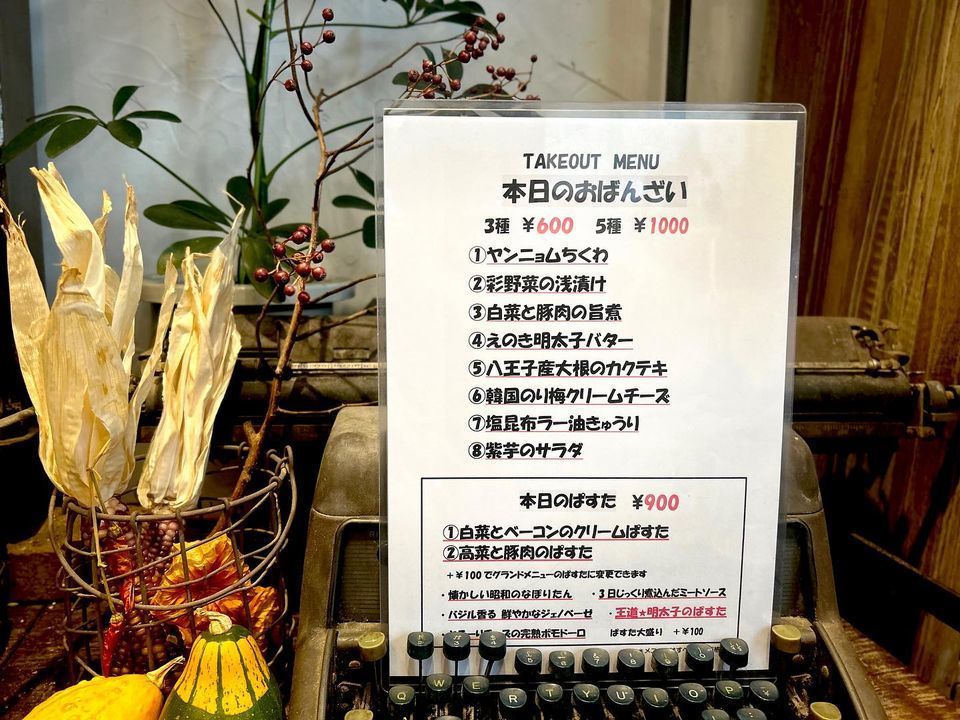 TAKEOUT MENU
本日のおばんざい
3種 ¥600 5種 ¥1000
①ヤンニョムちくわ
②彩野菜の浅漬け
③白菜と豚肉の旨煮
④えのき明太子バター
⑤八王子産大根のカクテキ
⑥韓国のり梅クリームチーズ
⑦塩昆布ラー油きゅうり
⑧紫芋のサラダ
本日のぱすた ¥900
①白菜とベーコンのクリームぱすた
②高菜と豚肉のぱすた
+¥100でグランドメニューのぱすたに変更できます
・懐かしい昭和のなぽりたん ・3日じっくり煮込んだミートソース
・バジル香る 鮮やかなジェノベーゼ ・王道★明太子のぱすた
の完熟ポモドーロ ぱすた大盛り +¥100
Q W E R T Y U I O P